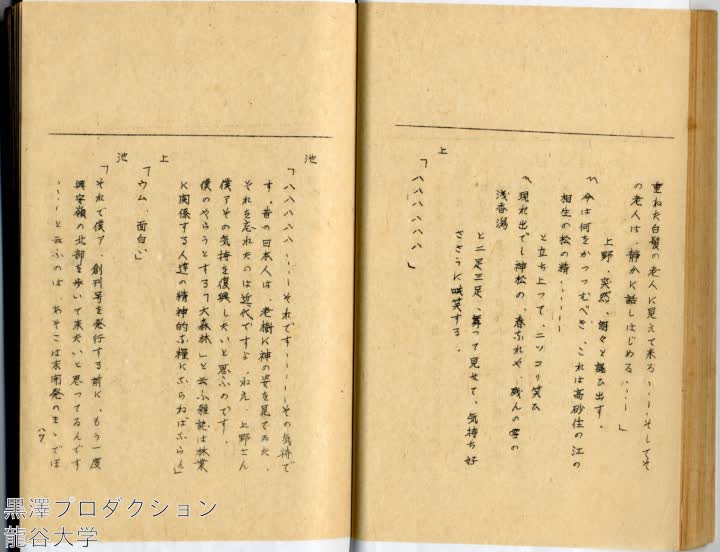 重ねた白髪の老人に見えて来る、、、、、そしてそ
の老人は、静かに話しはじめる、、、、」
上野、突然、朗々と謡ひ出す。
〽今は何をかつつむべき、これは高砂住の江の
相生の松の精、、、、、、
と立ち上って、ニッコリ笑ひ
〽現れ出でし神松の、春なれや、残んの雪の
浅香潟
と二足三足、舞って見せて、気持ち好
ささうに哄笑する。
上
「ハハハハハハハ」
池
「ハハハハハ、、、、それです、、、、、、その気持で
す。昔の日本人は、老樹に神の姿を見てゐた、
それを忘れたのは近代ですよ、ねえ、上野さん
僕アその気持を復興したいと思ふのです。
僕のやらうとする「大森林」と云ふ雑誌は林業
に関係する人達の精神的な糧にならねばならん」
上
「ウム、面白い」
池
「それで僕ア、創刊号を発行する前に、もう一度
興安嶺の北部を歩いて来たいと思ってるんです
、、、、と云ふのは、あそこは未開発のまゝでほ
八ケ
黒澤プロダクション
龍谷大学